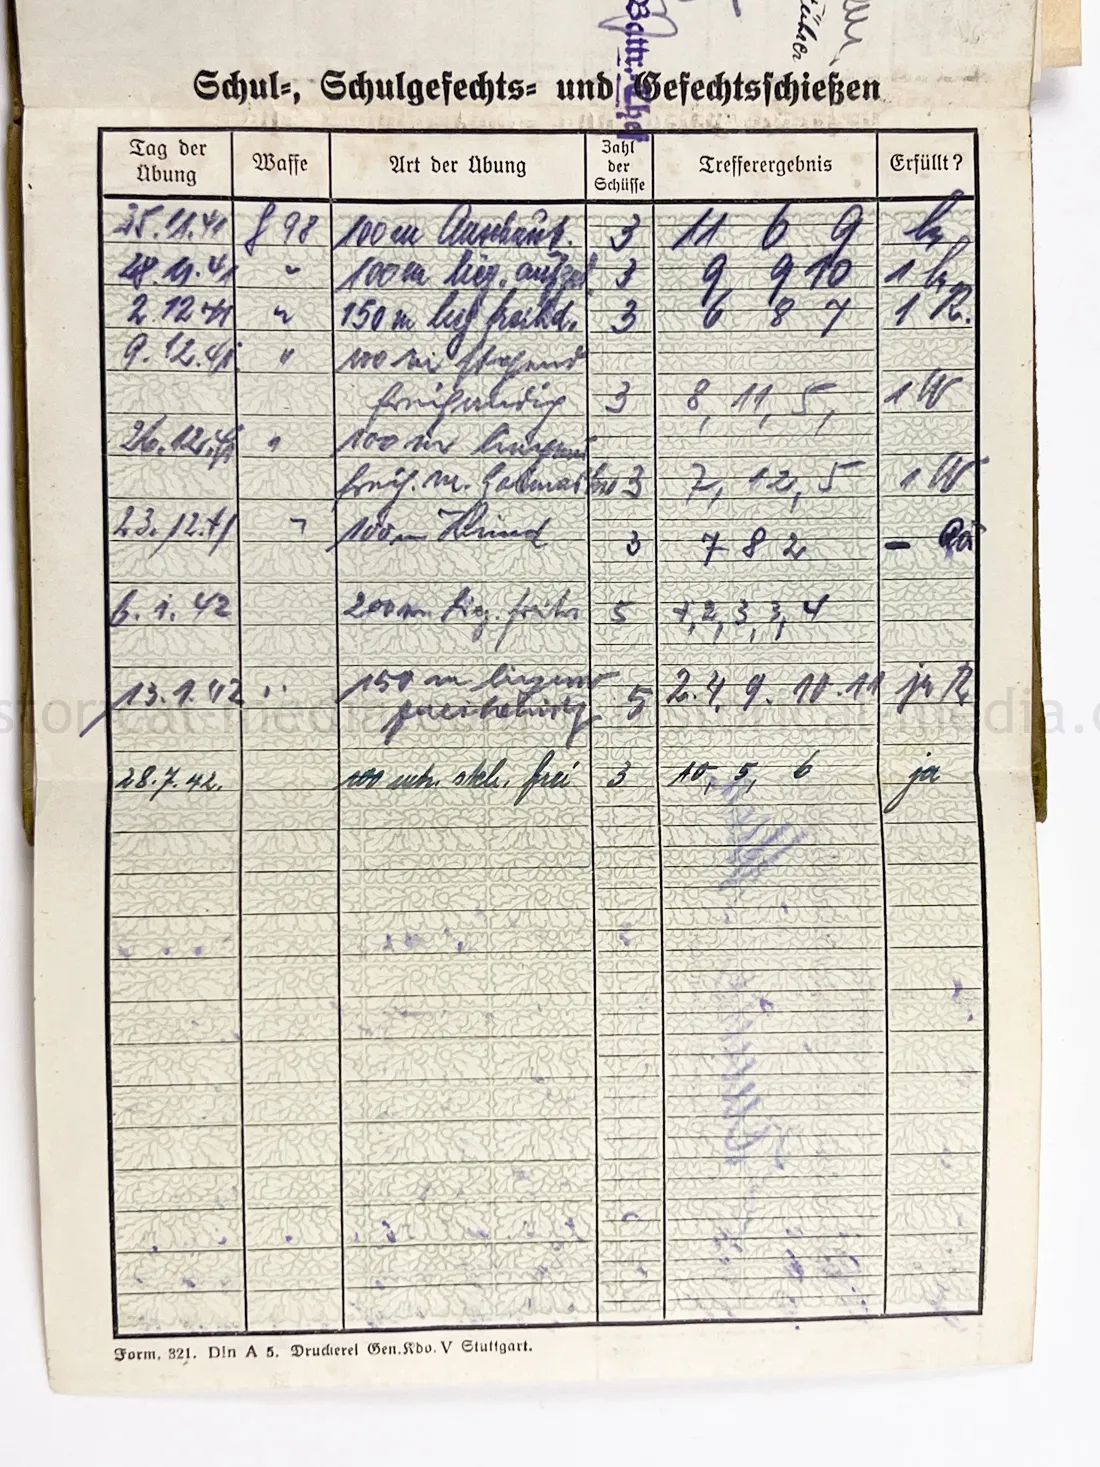 Bttr.-Chef
Schul-, Schulgefechts- und Gefechtsschießen
Tag der Übung Waffe Art der Übung Zahl der Schüsse Trefferergebnis Erfüllt?
25.11.41 98 100 m 3 11 6 9
11.41 " 100 m lieg. 3 9 9 10 1
2.12.41 " 150 m lieg. freihd. 3 6 8 7 1 R.
9.12.41. " 100 m stehend
freihändig 3 8, 11, 5, 1 W
26.12.41 " 100 m liegend
freih. m. 3 7, 12, 5 1 W
23.12.41 " 100 m 3 7 8 2 –
6.1.42 200 m lieg. freih. 5 7, 2, 3, 3, 4
13.1.42 " 150 m liegend
freihändig 5 2. 4. 9. 10. 11 ja R
28.7.42. 100 mtr. steh. frei 3 10, 5, 6 ja
historical-media.com
Form. 321. Din A 5. Druckerei Gen.Kdo. V Stuttgart.